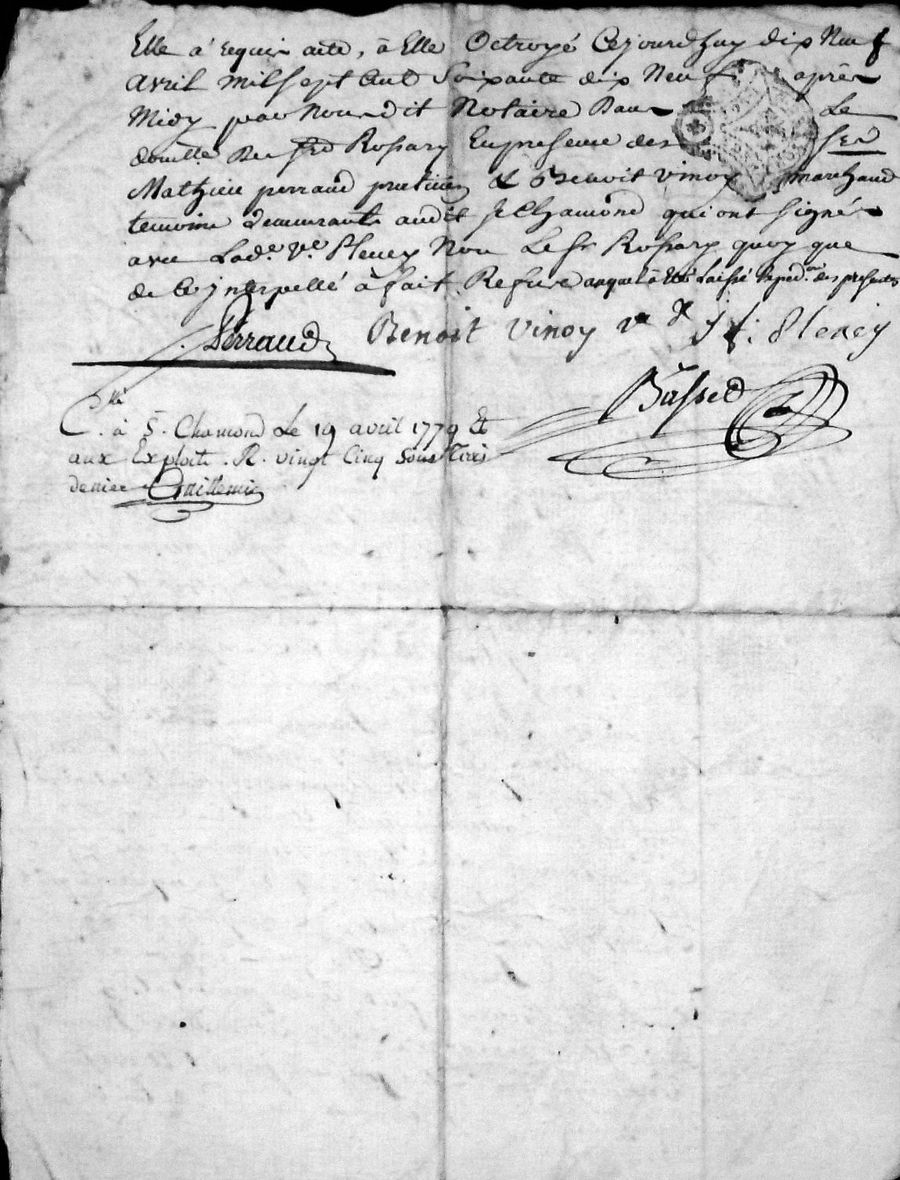 Elle à requis acte, à Elle Octroyé Cejourdhuy dix Neuf
Avril Mil Sept Cent Soixante dix Neuf après
Midy par Nous dit Notaire Dans Le
domlle Du sr Rossary En presence des srs
Mathieu perraud praticien & Benoit Vinoy marchand
temoins demeurants audit St Chamond qui ont signés
avec Lade. Ve. Fleury Non Le Sr Rossary quoy que
de Ce jnterpellé à fait Refus auquel à été Laissé Expedon. des presentes
Perraud Benoit Vinoy ve
Bassed
Cllé. à St. Chamond Le 19 avril 1779 Et
aux Exploits. R. vingt Cinq Sous
denier